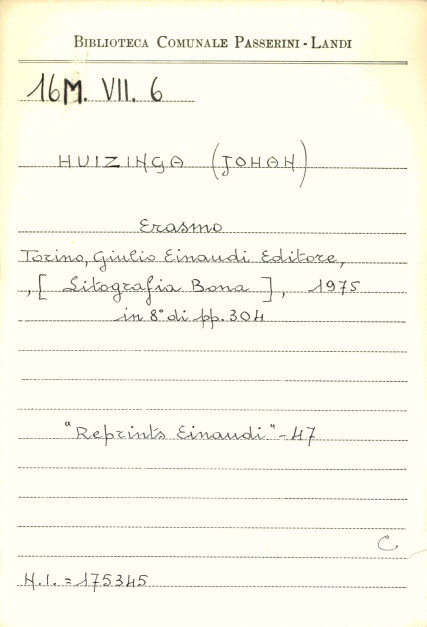 BIBLIOTECA COMUNALE PASSERINI - LANDI
16M. VII. 6
HUIZINGA (JOHAN)
Erasmo
Torino, Giulio Einaudi Editore,
, [ Litografia Bona ], 1975
in 8° di pp. 304
"Reprints Einaudi" - 47
C
N.I. = 175345